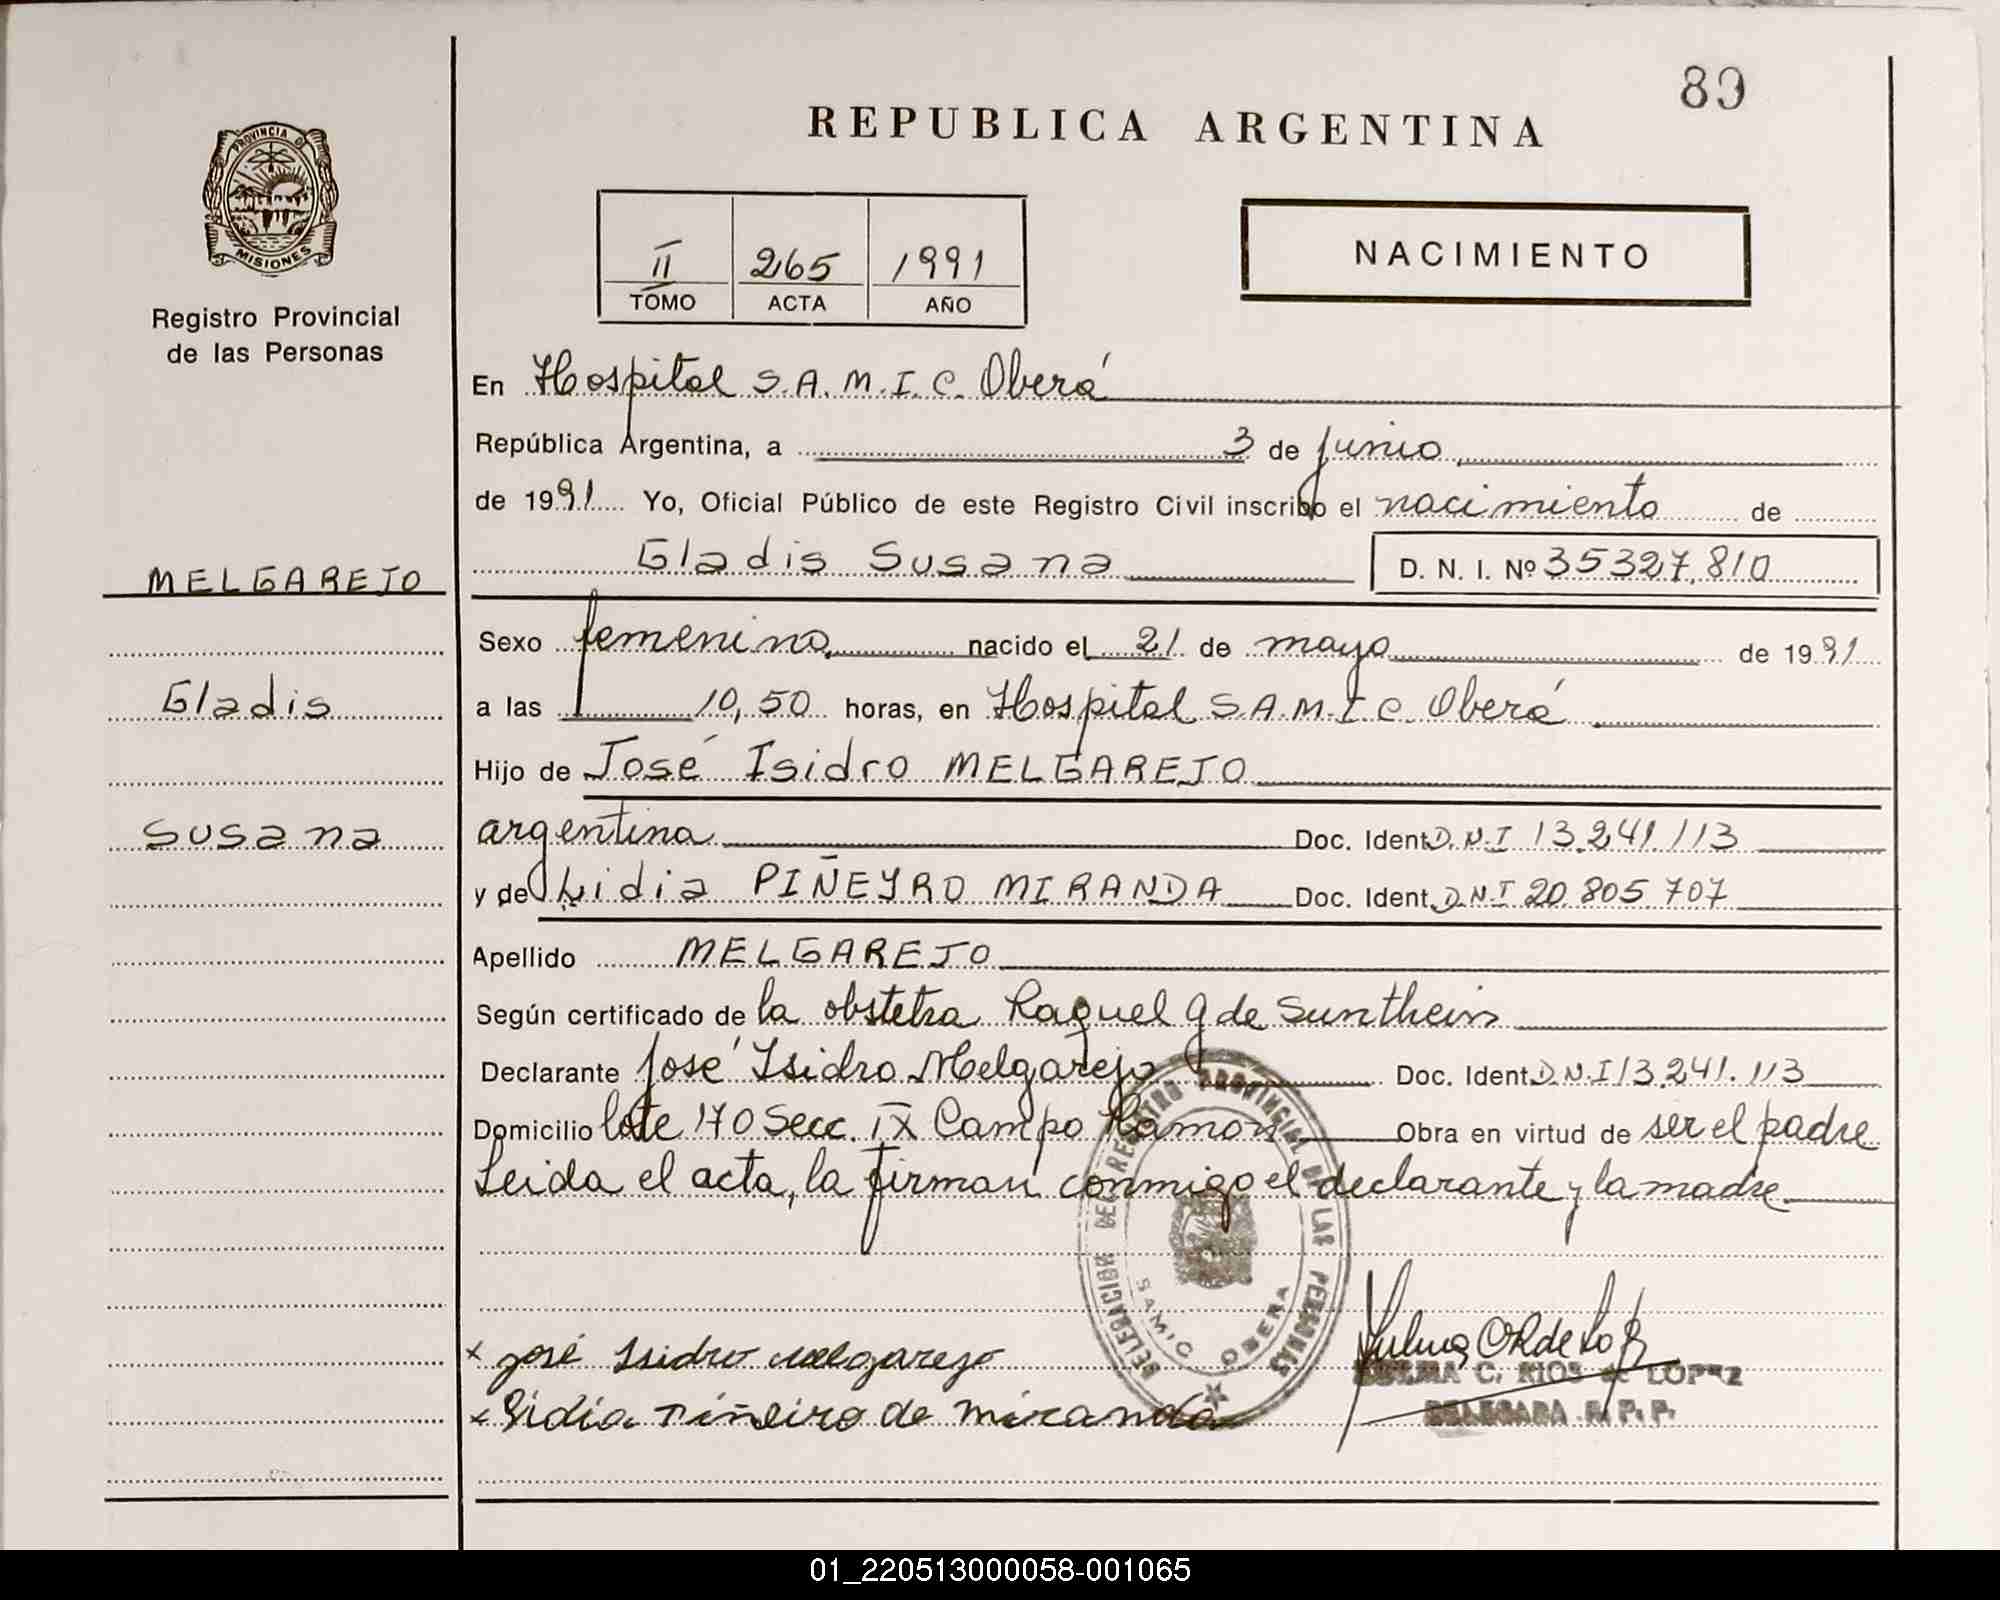 89
REPUBLICA ARGENTINA
PROVINCIA DE
MISIONES
Registro Provincial
de las Personas
II 265 1991
TOMO ACTA AÑO
NACIMIENTO
En Hospital S.A.M.I.C. Oberá
República Argentina, a 3 de junio
de 1991 Yo, Oficial Público de este Registro Civil inscribo el nacimiento de
Gladis Susana D. N. I. Nº 35327.810
MELGAREJO
Gladis
Susana
Sexo femenino nacido el 21 de mayo de 1991
a las 10,50 horas, en Hospital S.A.M.I.C. Oberá
Hijo de José Isidro MELGAREJO
argentina Doc. Ident. D.N.I 13.241.113
y de Lidia PIÑEYRO MIRANDA Doc. Ident. D.N.I 20.805.707
Apellido MELGAREJO
Según certificado de la obstetra Raquel G de Suntheim
Declarante José Isidro Melgarejo Doc. Ident. D.N.I 13.241.113
Domicilio lote 170 Secc. IX Campo Ramon Obra en virtud de ser el padre
Leida el acta, la firman conmigo el declarante y la madre
DELEGACION DEL REGISTRO PROVINCIAL DE LAS PERSONAS
SAMIC OBERA
José Isidro Melgarejo
Lidia Piñeiro de Miranda
C. RIOS de LOPEZ
DELEGADA R. P. P.
01_220513000058-001065